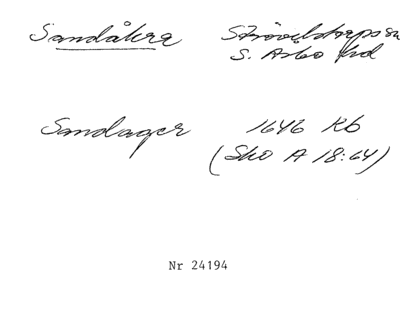 Sandåkra Strövelstorps sn
S. Åsbo hd
Sandager 1646 Kb
(Sko A 18:64)
Nr 24194